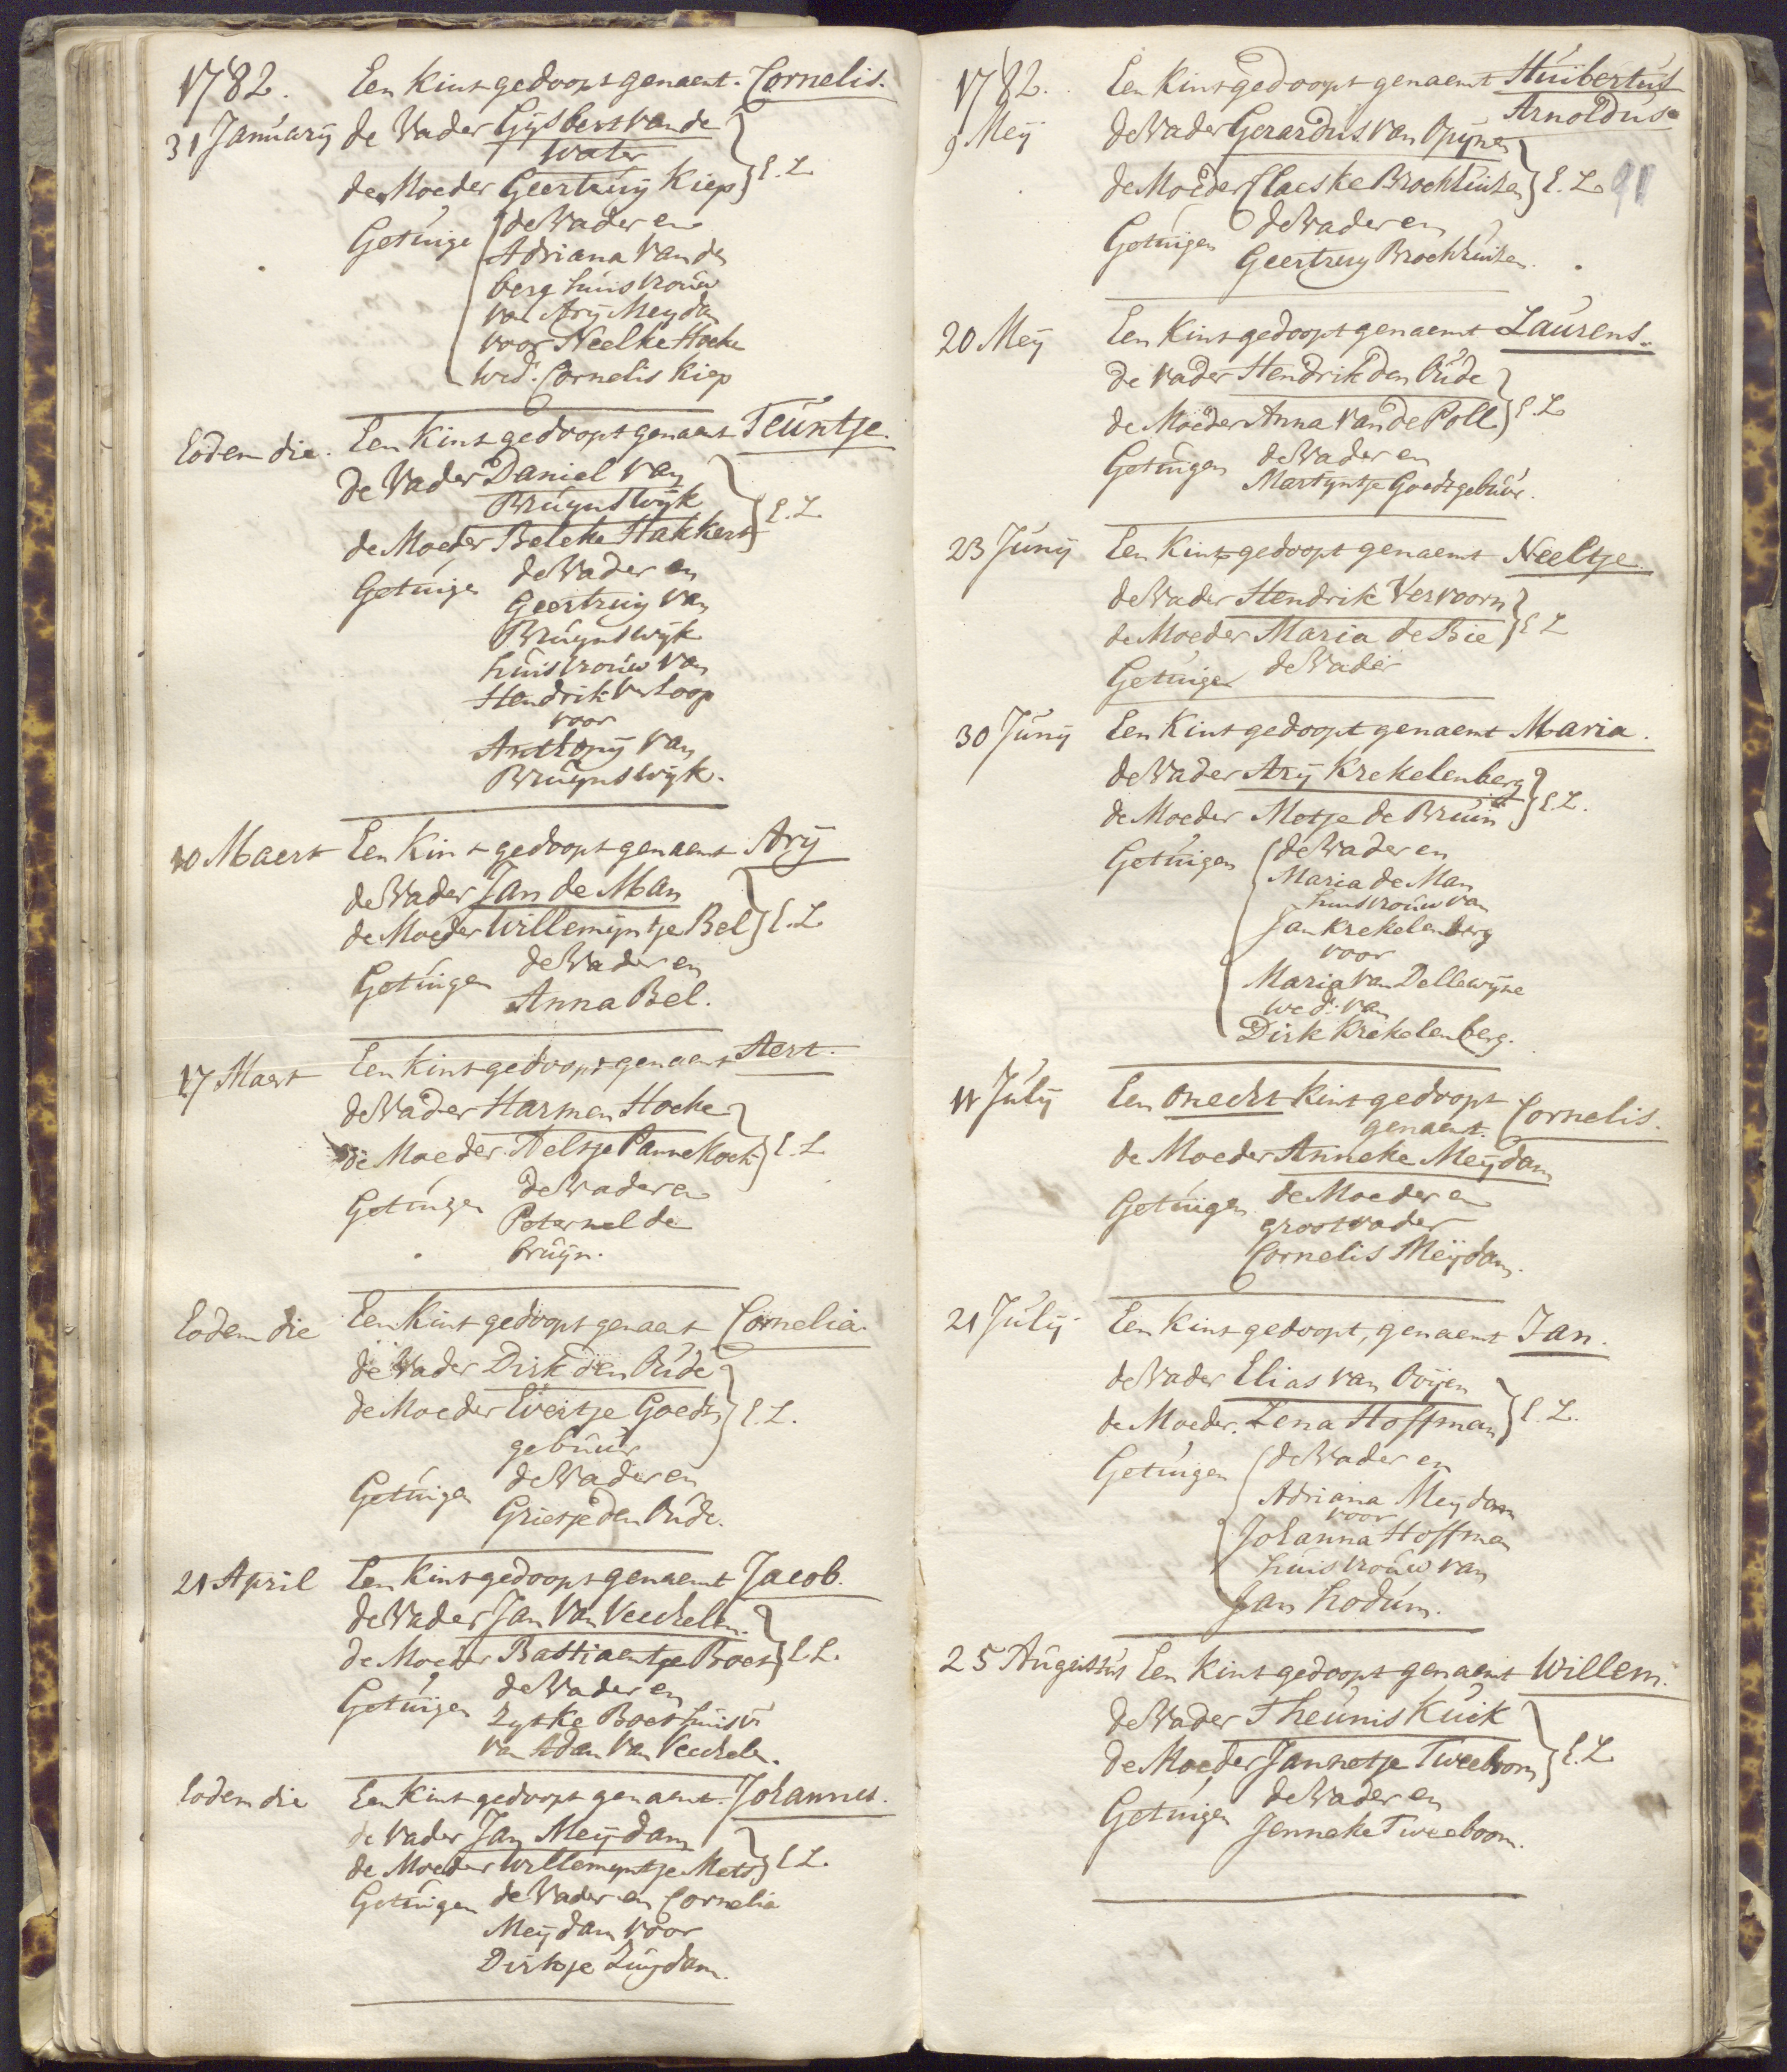 1782. Een Kint gedoopt genaemt. Cornelis.
31 January de Vader Gysbert van de
Water
de Moeder Geertruy Kiep } E. L.
Getuige de Vader en
Adriana Van den
berg huisvrouw
van Ary Meydam
voor Neelke Hoeke
wed. Cornelis Kiep
Eodem die. Een Kint gedoopt genaemt Teuntje.
de Vader Daniel van
Bruynswyk
de Moeder Beleke Hakkert } E. L.
Getuigen de Vader en
Geertruy van
Bruynswyk
huisvrouw van
Hendrik Verloop
voor
Anthony van
Bruynswyk.
10 Maert Een Kint gedoopt genaemt Ary
de Vader Jan de Man
de Moeder Willemyntje Bel } E. L.
Getuigen de Vader en
Anna Bel.
17 Maert Een Kint gedoopt genaemt Aert.
de Vader Harmen Hoeke
de Moeder Neeltje Pannekoek } E. L.
Getuigen de Vader en
Peternel de
bruyn.
Eodem die Een Kint gedoopt genaemt Cornelia.
de Vader Dirk den Oude
de Moeder Evertje Goedt
gebuur } E. L.
Getuigen de Vader en
Grietje den Oude.
21 April Een Kint gedoopt genaemt Jacob.
de Vader Jan Van Veeckelen.
de Moeder Bastiaentje Boes } E. L.
Getuigen de Vader en
Zyske Boes huisv
van Adam Van Veeckelen.
Eodem die Een Kint gedoopt genaemt. Johannes.
de Vader Jan Meydam
de Moeder Willemyntje Mets } E. L.
Getuigen de Vader en Cornelia
Meydam voor
Dirkje Zuydam.
1782. Een Kint gedoopt genaemt Huibertus
Arnoldus
9 Mey de Vader Gerardus van Opynen
de Moeder Claeske Brockhuizen } E. L. 91
Getuigen de Vader en
Geertruy Brockhuizen.
20 Mey Een Kint gedoopt genaemt Laurens.
de Vader Hendrik den Oude
de Moeder Anna Van de Poll } E. L
Getuigen de Vader en
Martyntje Goedtgebuur.
23 Juny Een Kint gedoopt genaemt Neeltje.
de Vader Hendrik Vervoorn
de Moeder Maria de Bie } E L
Getuige de Vader
30 Juny Een Kint gedoopt genaemt Maria.
de Vader Ary Krekelenberg
de Moeder Metje de Bruin } E. L.
Getuigen de Vader en
Maria de Man
huisvrouw van
Jan Krekelenberg
voor
Maria van Dellewyne
wed. van
Dirk Krekelenberg.
11 July Een onecht Kint gedoopt
genaemt. Cornelis.
de Moeder Anneke Meydam
Getuigen de Moeder en
grootvader
Cornelis Meydam.
21 July Een Kint gedoopt, genaemt Jan.
de Vader Elias van Ooijen
de Moeder. Lena Hoffman } E. L.
Getuigen de Vader en
Adriana Meydam
voor
Johanna Hoffman
huisvrouw van
Jan hodum.
25 Augustus Een Kint gedoopt genaemt Willem.
de Vader Theunis Kuik
de Moeder Jannetje Tweeboom } E. L
Getuigen de Vader en
Jenneke Tweeboom.